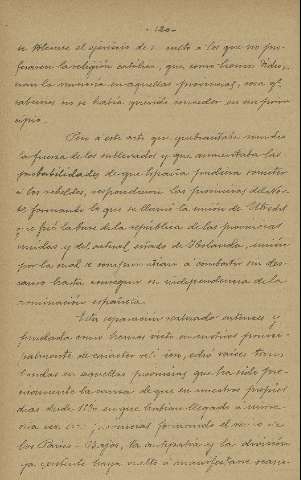 - 120 -
se tolerase el ejercicio de su culto a los que no pro-
fesaron la religión católica, que, como hemos visto,
eran la minoria en aquellas provincias, cosa q.
sabemos no se habia querido conceder en un prin-
cipio.
Pero a este acto que quebrantaba mucho
la fuerza de los sublevados y que aumentaba las
probabilidades de que España pudiera someter
a los rebeldes, respondieron las provincias del Nor-
te, formando lo que se llamó la unión de Utrecht
que fué la base de la república de las provincias
unidas y del actual estado de Holanda, unión
por la cual se comprometian a combatir sin des-
canso hasta conseguir su independencia de la
dominación española.
Esta separacion realizada entonces y
fundada como hemos visto en motivos princi-
palmente de caracter religioso, echó raices tan
hondas en aquellas provincias que ha sido pre-
cisamente la causa de que en nuestros propios
dias desde 1830 en que habian llegado a
las provincias formando el reino de
los Paises-Bajos, la antipatia y la división
ya existente haya vuelto a manifestarse